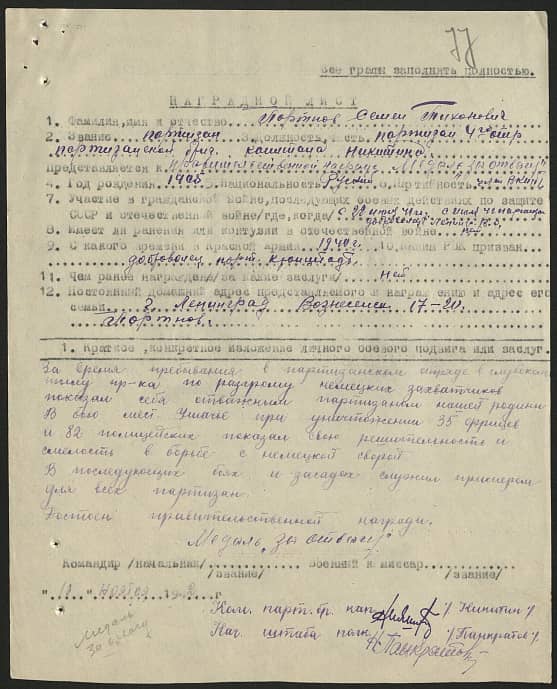 77
Все графы заполнять полностью.
НАГРАДНОЙ ЛИСТ
1. Фамилия, имя и отчество Портнов Семен Тихонович
2. Звание партизан 3. Должность, часть партизан 4го отр.
партизанской бриг. капитана Никитина
Представляется к правительственной награде Медаль "за отвагу"
4. Год рождения 1905 5. национальность Русский 6. партийность член ВКП/б
7. Участие в гражданской войне, последующих боевых действиях по защите
СССР и отечественной войне /где, когда/ с 22 июня 41г.
8. Имеет ли ранения или контузии в отечественной войне нет
9. С какого времени в Красной армии 1941г. 10. Каким РВК призван
доброволец парт.
11. Чем ранее награжден /за какие заслуги/ Нет
12. Постоянный домашний адрес представляемого к награждению и адрес его
семьи г. Ленинград Вознесенск 17-20.
Портнов.
1. Краткое, конкретное изложение личного боевого подвига или заслуг.
За время пребывания в партизанском отряде в глубоком
тылу пр-ка по разгрому немецких захватчиков
показал себя отважным партизаном нашей родины
В бою мест. Ушачье при уничтожении 35 фрицов
и 82 полицейских показал свою решительность и
смелость в борьбе с немецкой сворой
В последующих боях и засадах служил примером
для всех партизан.
Достоин правительственной награды.
Медаль "За отвагу"
Командир /начальник/ Военный комиссар
/звание/ /звание/
ноября 1942 г
Ком. парт. бр. кап. /Никитин/
Нач. штаба полк. /Панкратов/
медаль
за отвагу